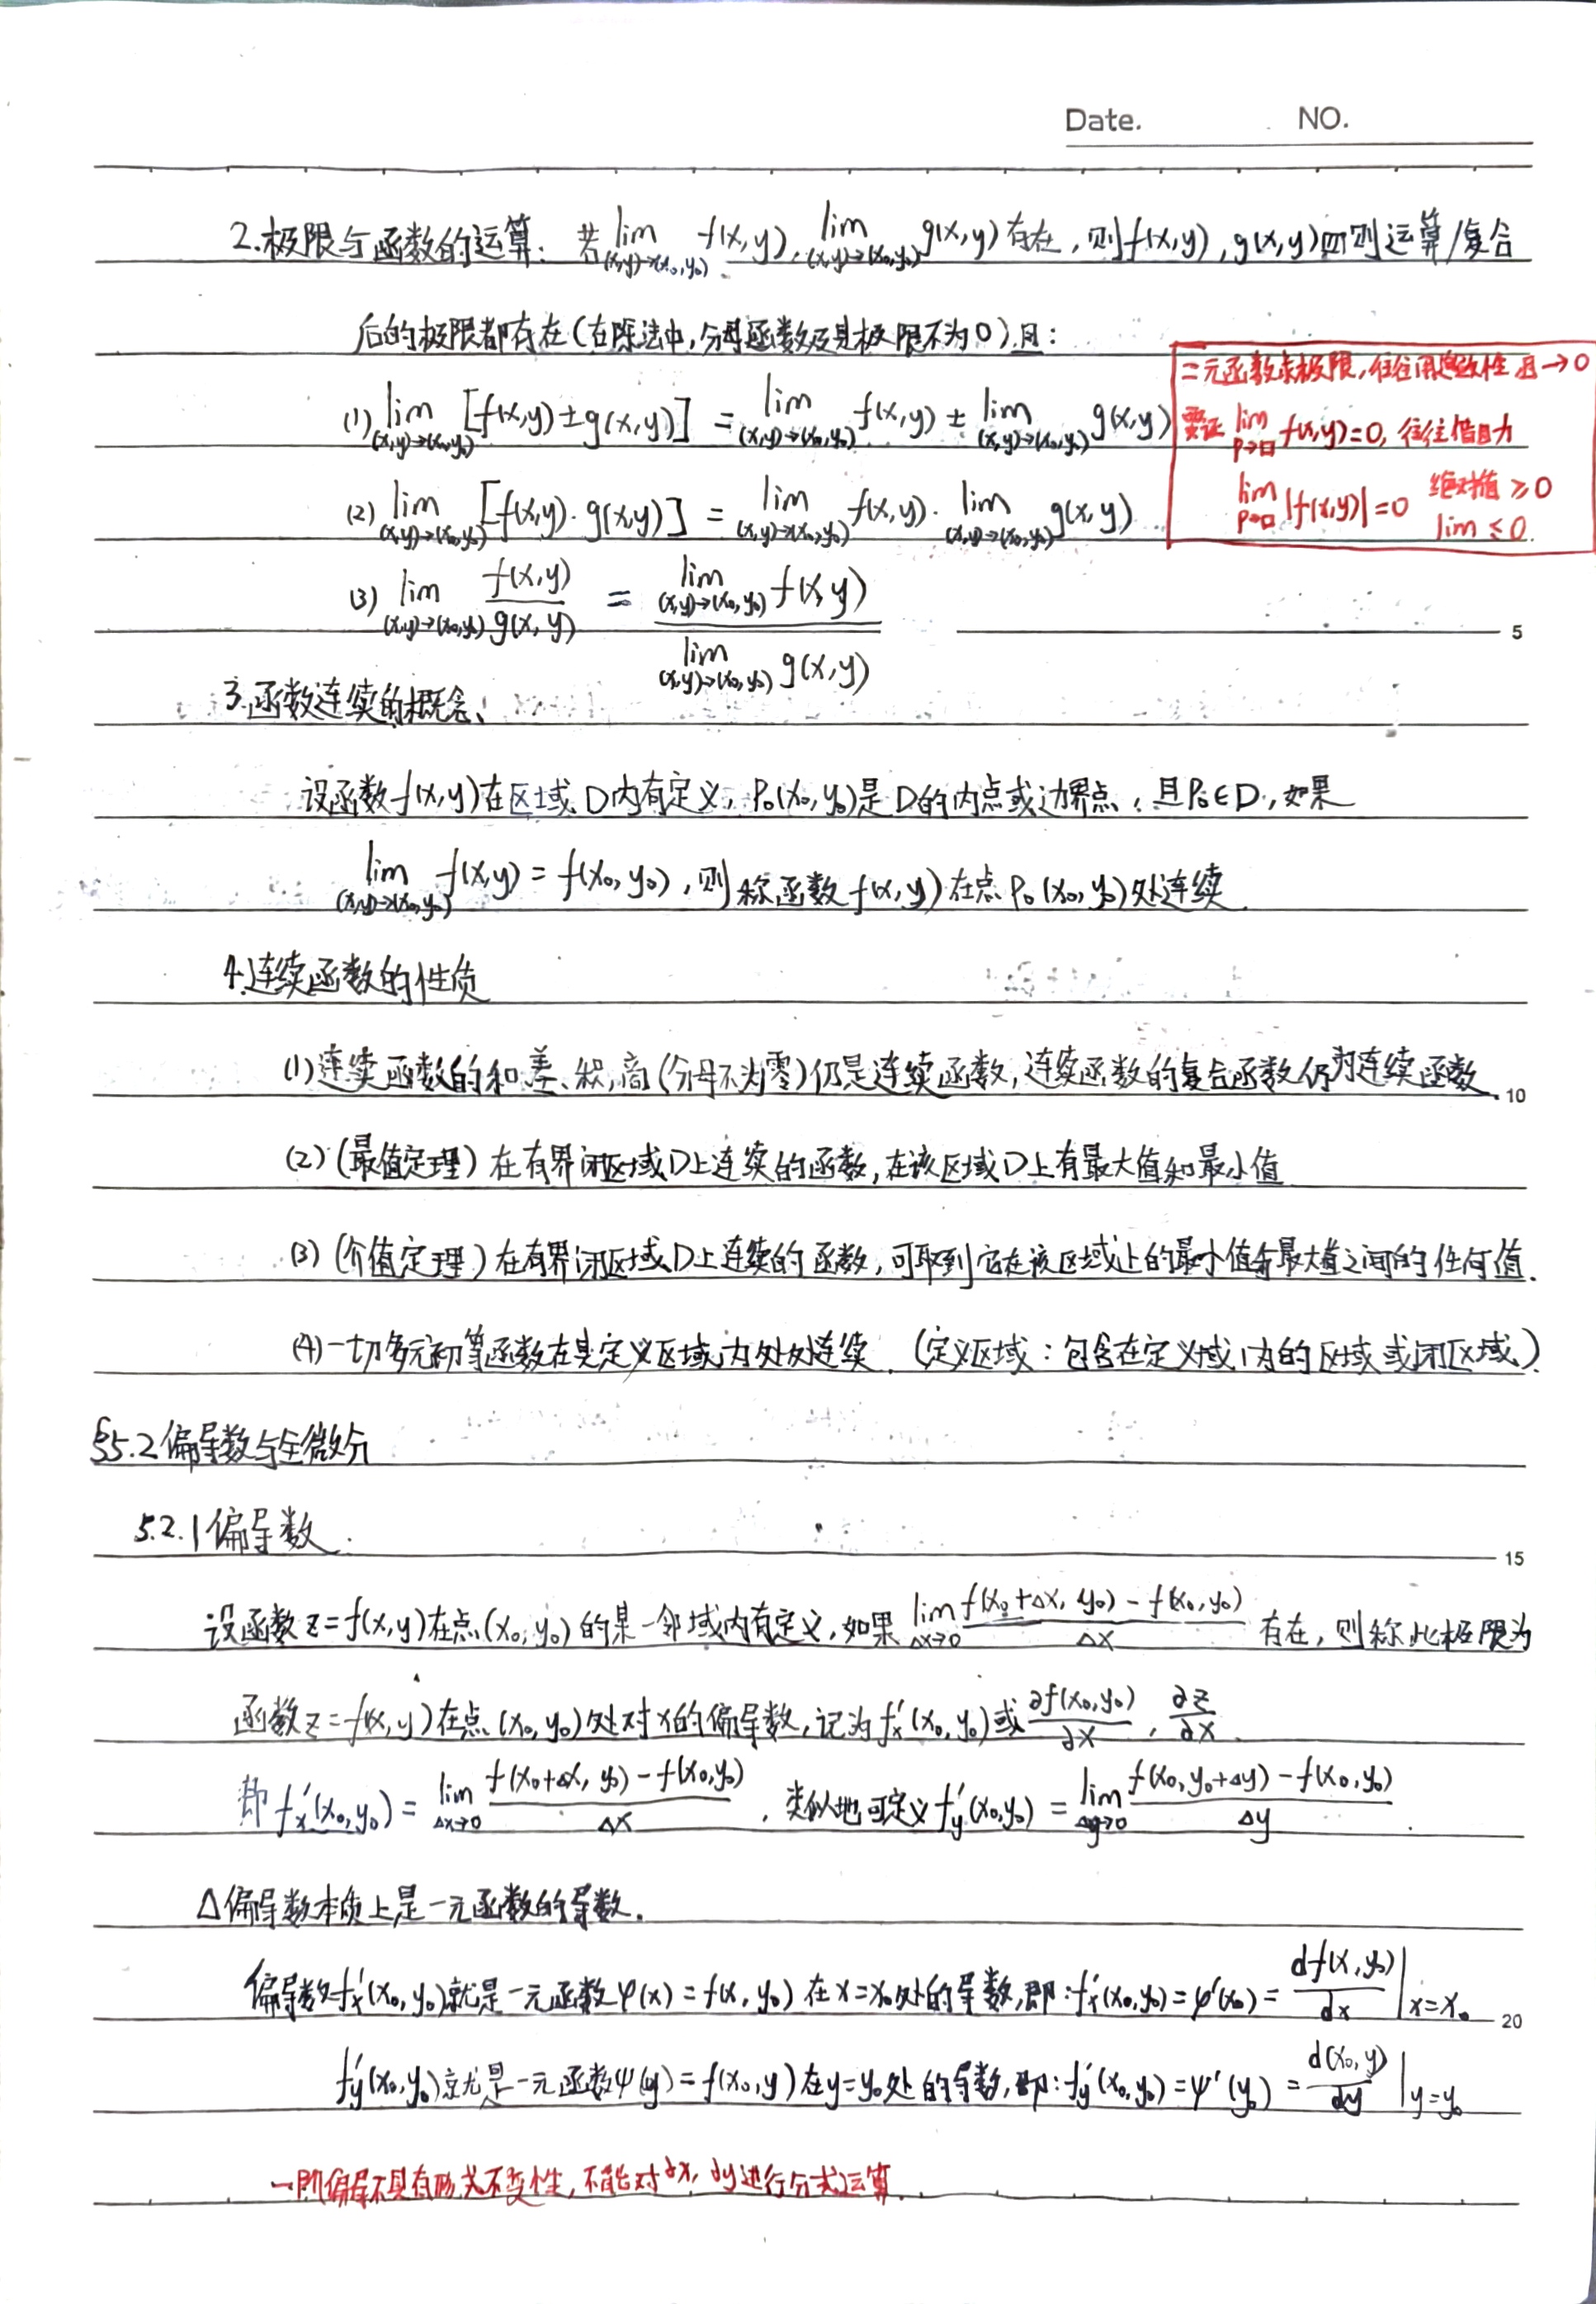 Date. NO.
2.极限与函数的运算: 若lim(x,y)→(x₀,y₀) f(x,y), lim(x,y)→(x₀,y₀) g(x,y)存在,则f(x,y),g(x,y)四则运算/复合
后的极限都存在(在除法中,分母函数及其极限不为0)且:
二元函数求极限,往往用 性 且→0
(1) lim(x,y)→(x₀,y₀) [f(x,y)±g(x,y)] = lim(x,y)→(x₀,y₀) f(x,y) ± lim(x,y)→(x₀,y₀) g(x,y)
要证 lim P→□ f(x,y)=0, 往往借助
(2) lim(x,y)→(x₀,y₀) [f(x,y)·g(x,y)] = lim(x,y)→(x₀,y₀) f(x,y) · lim(x,y)→(x₀,y₀) g(x,y)
lim P→□ |f(x,y)|=0 绝对值 ≥0
lim ≤0.
(3) lim(x,y)→(x₀,y₀) f(x,y)/g(x,y) = lim(x,y)→(x₀,y₀) f(x,y) / lim(x,y)→(x₀,y₀) g(x,y)
5
3.函数连续的概念、
设函数f(x,y)在区域D内有定义, P₀(x₀,y₀)是D的内点或边界点,且P₀∈D,如果
lim(x,y)→(x₀,y₀) f(x,y) = f(x₀,y₀),则称函数f(x,y)在点P₀(x₀,y₀)处连续.
4.连续函数的性质
(1)连续函数的和、差、积,商(分母不为零)仍是连续函数,连续函数的复合函数仍为连续函数.
10
(2)(最值定理)在有界闭区域D上连续的函数,在该区域D上有最大值和最小值
(3)(介值定理)在有界闭区域D上连续的函数,可取到它在该区域上的最小值与最大值之间的任何值.
(4)一切多元初等函数在其定义区域内处处连续.(定义区域:包含在定义域内的区域或闭区域)
§5.2偏导数与全微分
5.2.1偏导数.
15
设函数z=f(x,y)在点(x₀,y₀)的某一邻域内有定义,如果 lim Δx→0 (f(x₀+Δx, y₀)-f(x₀,y₀))/Δx 存在,则称此极限为
函数z=f(x,y)在点(x₀,y₀)处对x的偏导数,记为f'ₓ(x₀,y₀)或 ∂f(x₀,y₀)/∂x, ∂z/∂x.
即f'ₓ(x₀,y₀) = lim Δx→0 (f(x₀+Δx, y₀)-f(x₀,y₀))/Δx, 类似地可定义f'_y(x₀,y₀) = lim Δy→0 (f(x₀,y₀+Δy)-f(x₀,y₀))/Δy.
Δ偏导数本质上是一元函数的导数.
偏导数f'ₓ(x₀,y₀)就是一元函数φ(x)=f(x,y₀)在x=x₀处的导数,即:f'ₓ(x₀,y₀)=φ'(x₀)= df(x,y₀)/dx |x=x₀
20
f'_y(x₀,y₀)就是一元函数ψ(y)=f(x₀,y)在y=y₀处的导数,即:f'_y(x₀,y₀)=ψ'(y₀) = d(x₀,y)/dy |y=y₀
一阶偏导不具有形式不变性,不能对∂x, ∂y进行分式运算.